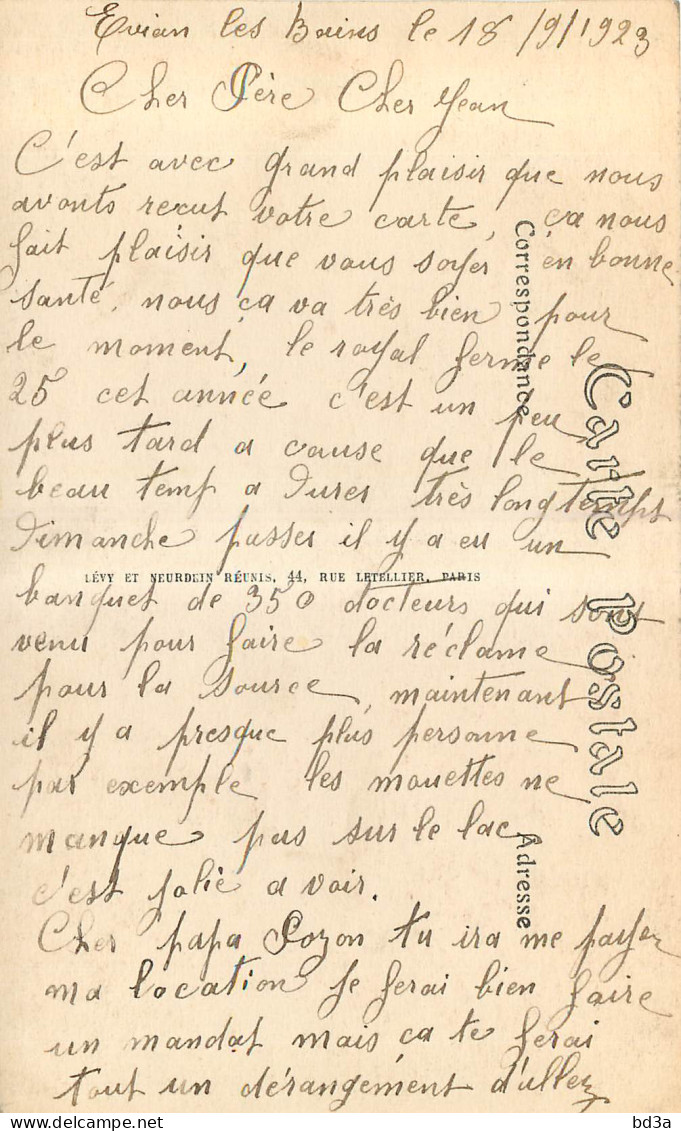 Evian les Bains le 18/9/1923
Cher Père Cher Jean
C'est avec grand plaisir que nous
avonts recut votre carte, ça nous
fait plaisir que vous soyer en bonne
santé, nous ça va très bien pour
le moment, le royal ferme le
25 cet année c'est un peu
plus tard a cause que le
beau temp a dures très longtemps
Dimanche passer il y a eu un
LÉVY ET NEURDEIN RÉUNIS, 44, RUE LETELLIER, PARIS
banquet de 350 docteurs qui sont
venu pour faire la réclame
pour la source, maintenant
il y a presque plus personne
par exemple les mouettes ne
manque pas sur le lac
c'est jolie a voir.
Cher papa Pozon tu ira me payer
ma location je ferai bien faire
un mandat mais ça te ferai
tout un dérangement d'allez
Carte Postale
Correspondance
Adresse
delcampe.net
bd3a